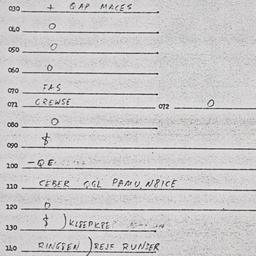 030 + GAP MACES
040 0
050 0
060 0
070 FAS
071 CREWSE 072 0
080 0
090 $
100 -QE
110 CEBER QGL PAMU, N8ICE
120 0
130 $ )
140 RINGSEN ) REJF RUNSER